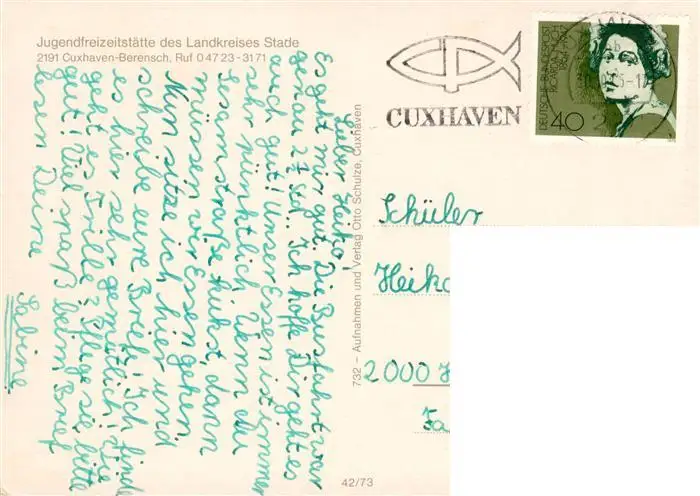 Jugendfreizeitstätte des Landkreises Stade
2191 Cuxhaven-Berensch, Ruf 0 47 23 - 3171
Lieber Heiko!
Es geht mir gut. Die Busfahrt war
genau 2½ Std. Ich hoffe Dir geht es
auch gut! Unser Essen ist immer
sehr pünktlich. Wenn du
Sesamstraße kukst, dann
müssen wir Essen gehen.
Nun sitze ich hier und
schreibe eure Briefe! Ich finde
es hier sehr gemütlich. Wie
geht es Trille? Pflege sie bitte
gut! Viel spaß beim Brief
lesen Deine
Sabine
732 – Aufnahmen und Verlag Otto Schulze, Cuxhaven
42/73
CUXHAVEN
DEUTSCHE BUNDESPOST
RICARDA HUCH
1864-1947
40
Schüler
Heiko
2000 H